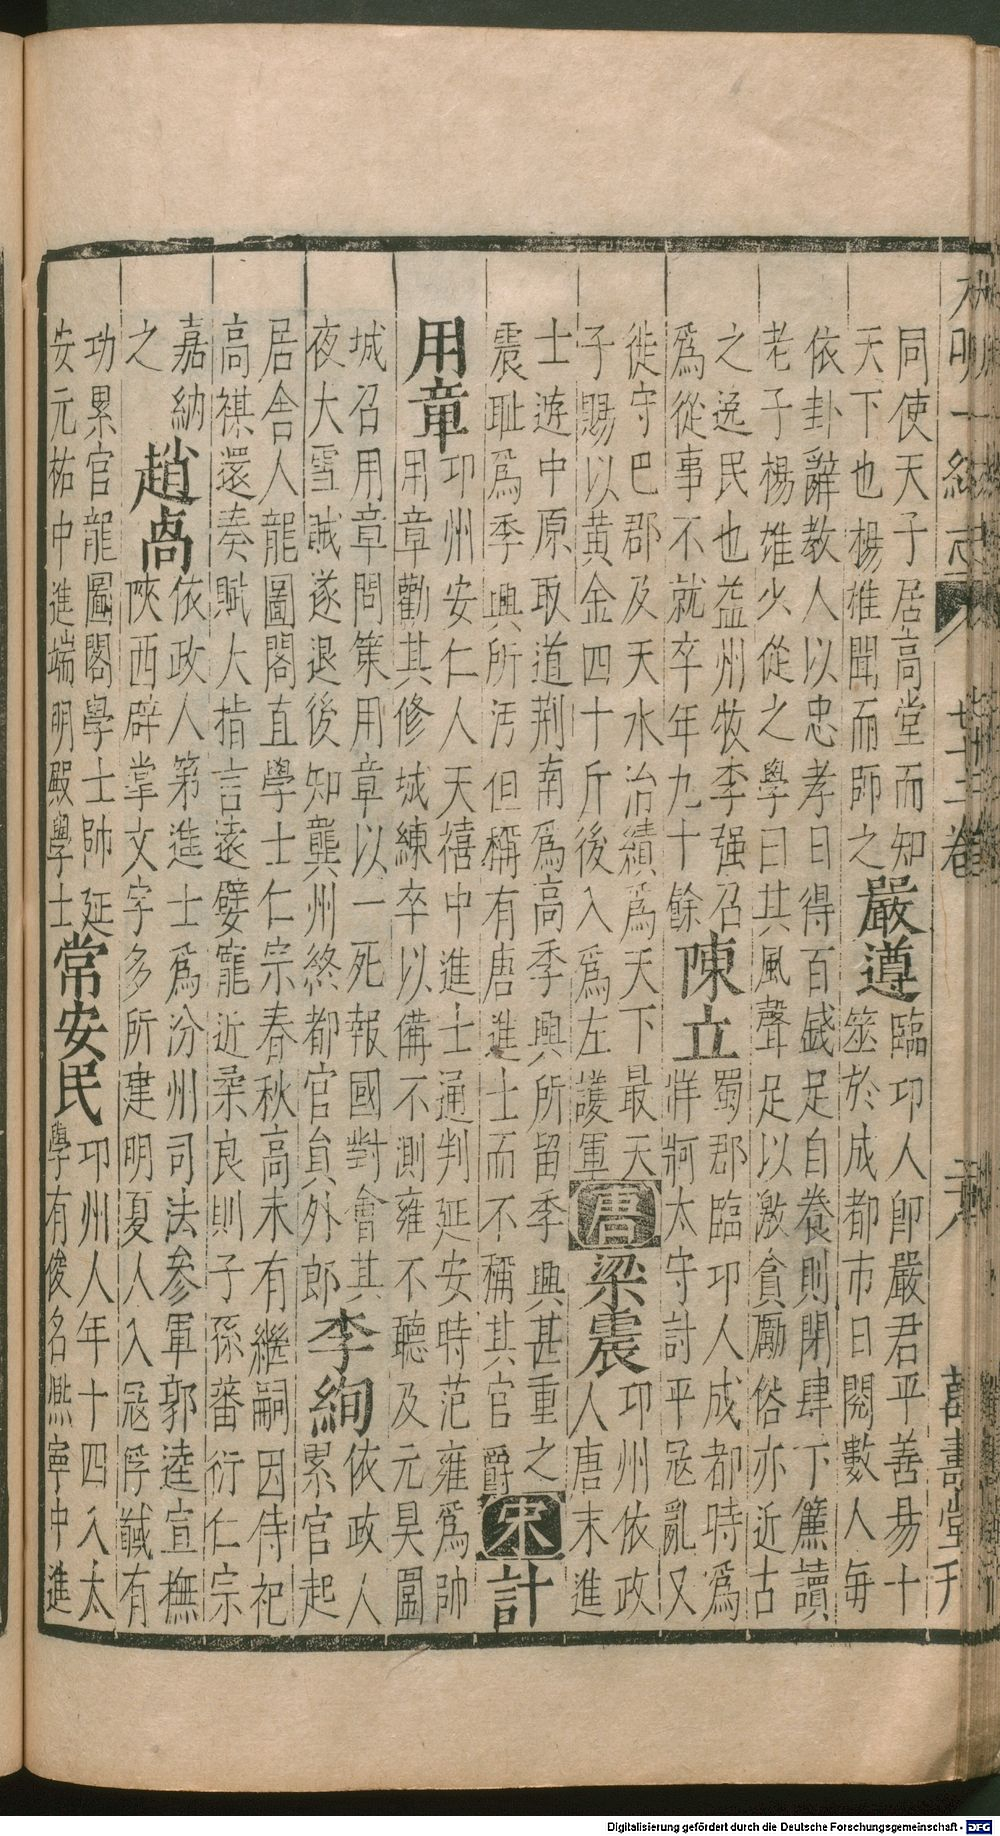 大明一統志 七十二卷 萬壽堂刊
同使天子居高堂而知
天下也楊雄聞而師之
嚴遵
臨邛人即嚴君平善昜卜
筮於成都市日閱數人每
依卦辭教人以忠孝日得百錢足自養則閉肆下簾讀
老子楊雄少從之學曰其風聲足以激貪勵俗亦近古
之逸民也益州牧李强召
爲從事不就卒年九十餘
陳立
蜀郡臨邛人成都時爲
牂牁太守討平冦亂又
徙守巴郡及天水治績爲天下最天
子賜以黃金四十斤後入爲左護軍
唐
梁震
邛州依政
人唐末進
士遊中原取道荆南爲高季興所留季興甚重之
震耻爲季興所汚但稱有唐進士而不稱其官爵
宋
計
用章
邛州安仁人天禧中進士通判延安時范雍爲帥
用章勸其修城練卒以備不測雍不聽及元昊圍
城召用章問策用章以一死報國對會其
夜大雪賊遂退後知龔州終都官貟外郎
李絢
依政人
累官起
居舍人龍圖閣直學士仁宗春秋高未有繼嗣因侍祀
高禖還奏賦大指言遠嬖寵近柔良則子孫蕃衍仁宗
嘉納
之
趙卨
依政人第進士爲汾州司法參軍郭逵宣撫
陝西辟掌文字多所建明夏人入冦俘馘有
功累官龍圖閣學士帥延
安元祐中進端明殿學士
常安民
邛州人年十四入太
學有俊名熈寧中進
Digitalisierung gefördert durch die Deutsche Forschungsgemeinschaft - DFG